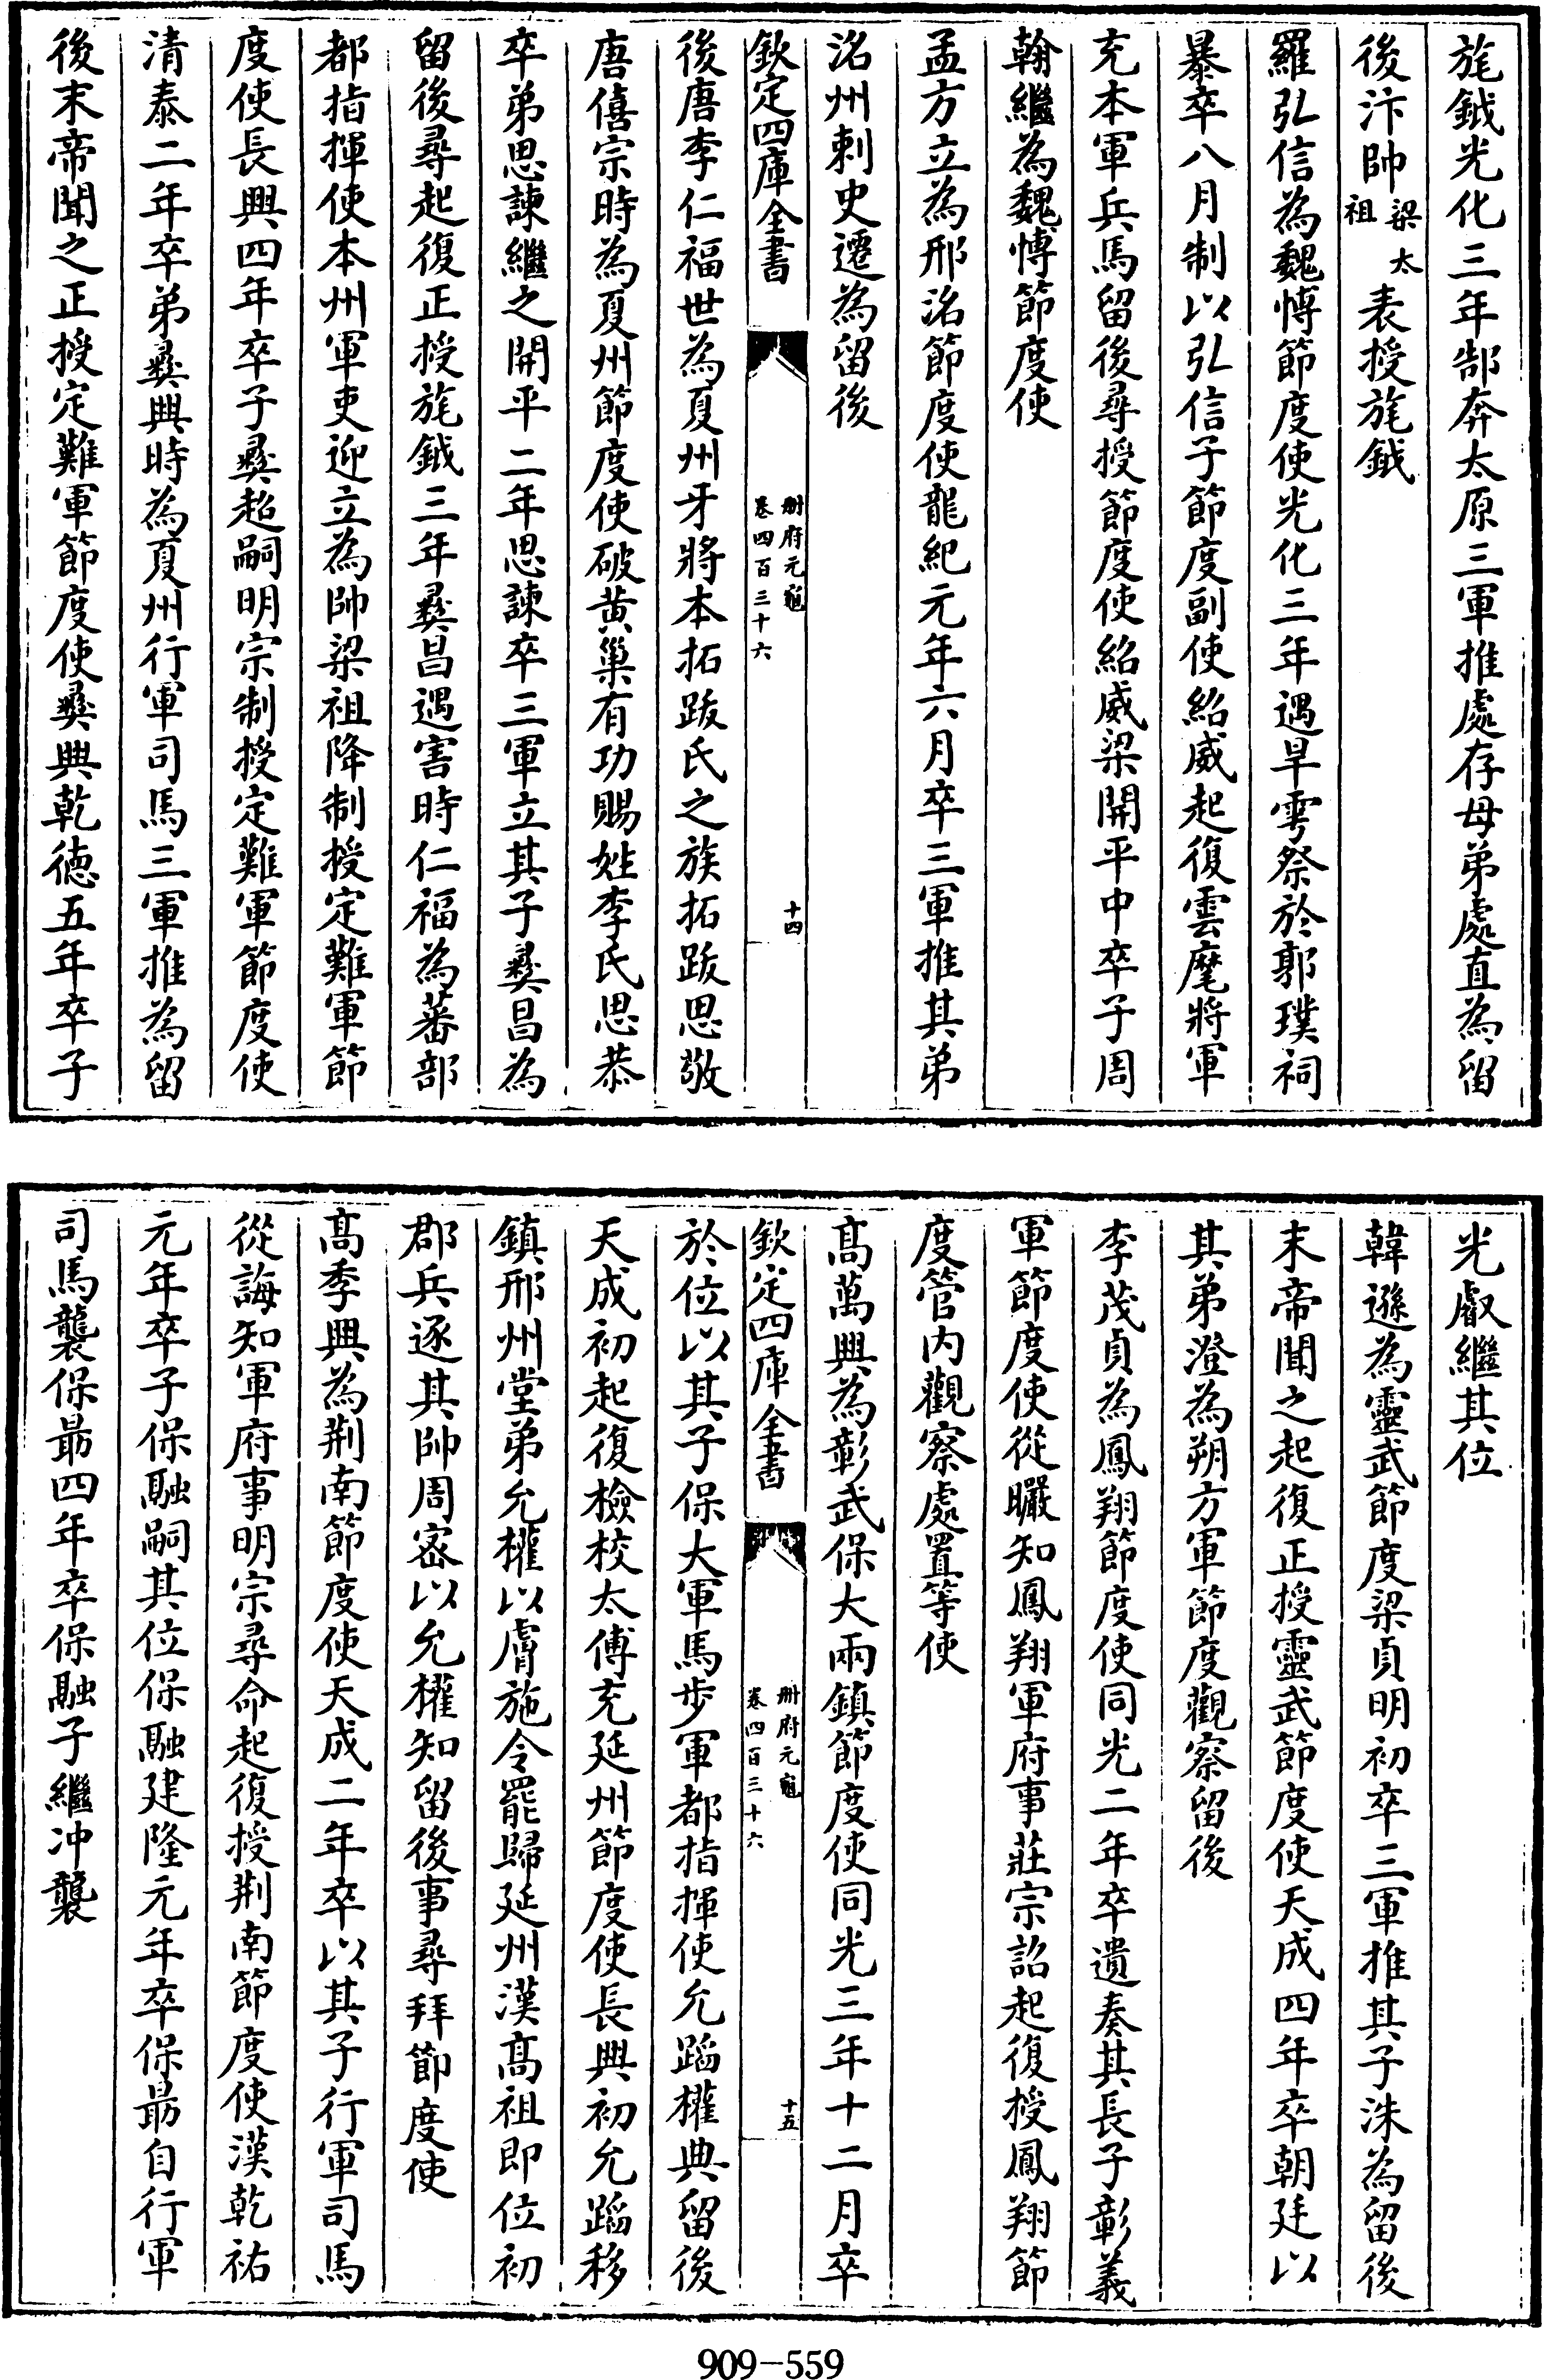 旄鉞光化三年郜奔太原三軍推處存母弟處直為留
後汴帥梁太祖表授旄鉞
羅弘信為魏愽節度使光化三年遇旱雩祭於郭璞祠
暴卒八月制以弘信子節度副使紹威起復雲麾將軍
充本軍兵馬留後尋授節度使紹威梁開平中卒子周
翰繼為魏愽節度使
孟方立為邢洺節度使龍紀元年六月卒三軍推其弟
洺州刺史遷為留後
欽定四庫全書
冊府元龜
卷四百三十六
十四
後唐李仁福世為夏州牙將本拓跋氏之族拓跋思敬
唐僖宗時為夏州節度使破黄巢有功賜姓李氏思恭
卒弟思諫繼之開平二年思諫卒三軍立其子彞昌為
留後尋起復正授旄鉞三年彞昌遇害時仁福為蕃部
都指揮使本州軍吏迎立為帥梁祖降制授定難軍節
度使長興四年卒子彞超嗣明宗制授定難軍節度使
清泰二年卒弟彞興時為夏州行軍司馬三軍推為留
後末帝聞之正授定難軍節度使彞興乾徳五年卒子
光叡繼其位
韓遜為靈武節度梁貞明初卒三軍推其子洙為留後
末帝聞之起復正授靈武節度使天成四年卒朝廷以
其弟澄為朔方軍節度觀察留後
李茂貞為鳳翔節度使同光二年卒遺奏其長子彰義
軍節度使從曮知鳳翔軍府事莊宗詔起復授鳳翔節
度管内觀察處置等使
髙萬興為彰武保大兩鎮節度使同光三年十二月卒
欽定四庫全書
冊府元龜
卷四百三十六
十五
於位以其子保大軍馬步軍都指揮使允蹈權典留後
天成初起復檢校太傅充延州節度使長興初允蹈移
鎮邢州堂弟允權以膚施令罷歸延州漢髙祖即位初
郡兵逐其帥周宻以允權知留後事尋拜節度使
髙季興為荆南節度使天成二年卒以其子行軍司馬
從誨知軍府事明宗尋命起復授荆南節度使漢乾祐
元年卒子保融嗣其位保融建隆元年卒保最自行軍
司馬襲保最四年卒保融子繼冲襲
909-559